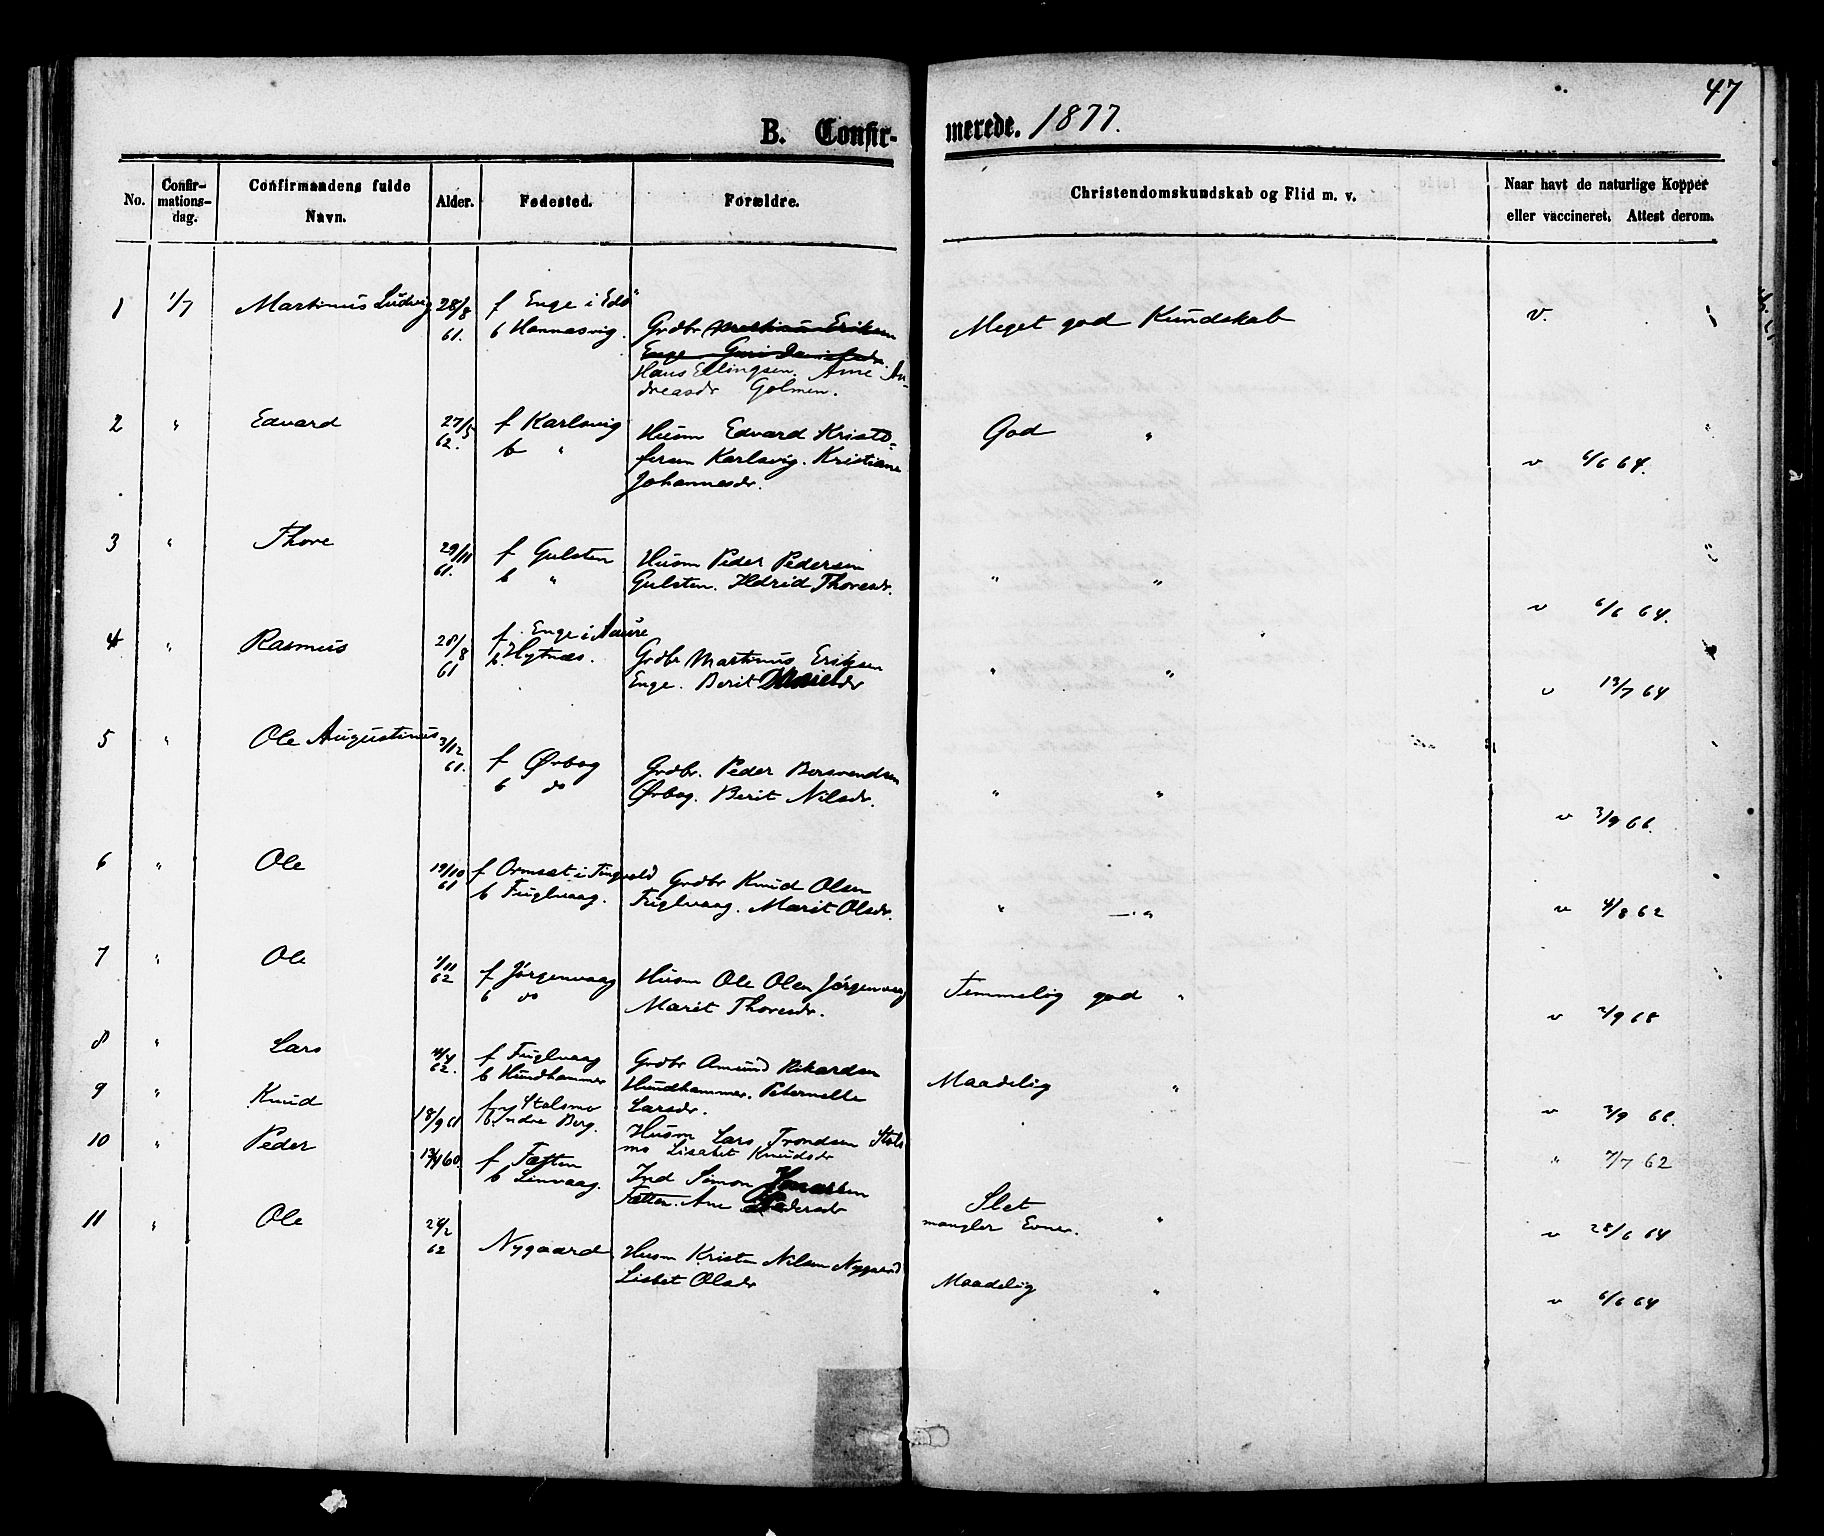 47
B. Confir- merede. 1877.
No. Confir- mations- dag. Confirmandens fulde Navn. Alder. Fødested. Forældre. Christendomskundskab og Flid m. v. Naar havt de naturlige Kopper eller vaccineret, Attest derom.
1 1/7 Martinus Ludvig 28/8 61. f Enge i Edø
b Hannasvig. Grdbr Martinus Eriksen Meget god Kundskab v.
Enge Guri
Hans Ellingsen. Ane An-
dreasdr Golmen.
2 " Edvard 27/5 62. f Karlsvig
b " Husm Edvard Kristo- God "
fersen Karlsvig. Kristiane v 6/6 64.
Johannesdr.
3 " Thore 29/11 61. f Gulsten Husm Peder Pedersen
b " Gulsten. Ildrid Thoresdr. " "
v 6/6 64.
4 " Rasmus 28/8 61 f Enge i Aure
b. Hytnæs. Grdbr Martinus Eriksen " "
Enge. Berit v 13/7 64
5 " Ole Augustinus 3/12 61. f Ørbog Grdbr. Peder Bersvendsen
b do Ørbog. Berit Nilsdr. " "
v 3/9 66.
6 " Ole 19/10 61 f Ormsæt i Tingvold
b Fuglvaag. Grdbr Knud Olsen
Fuglvaag. Marit Olsdr. " — " v 4/8 62
7 " Ole 1/11 62 f Jørgenvaag Husm Ole Olsen Jørgenvaag Temmelig god "
b do Marit Thoresdr. v 2/9 68
8 " Lars 62. f Fuglvaag Grdbr Amund Rikardsen
b Hundhammer Hundhammer. Peternelle Maadelig "
Larsdr. v 3/9 66.
9 " Knud 18/9 61 f Stolsmo
b Indre Berg. Husm Lars Trondsen Stols
mo Lisebet Knudsdr " 7/7 62
10 " Peder 13/4 60. f Fætten
b Linvaag. Ind Simon
Fætten. Ane Pedersdr Slet "
mangler Evner. v 28/6 64
11 " Ole 24/2 62 Nygaard Husm Kristen Nilsen Nygaard
Lisbet Olsdr Maadelig "
v 6/6 64